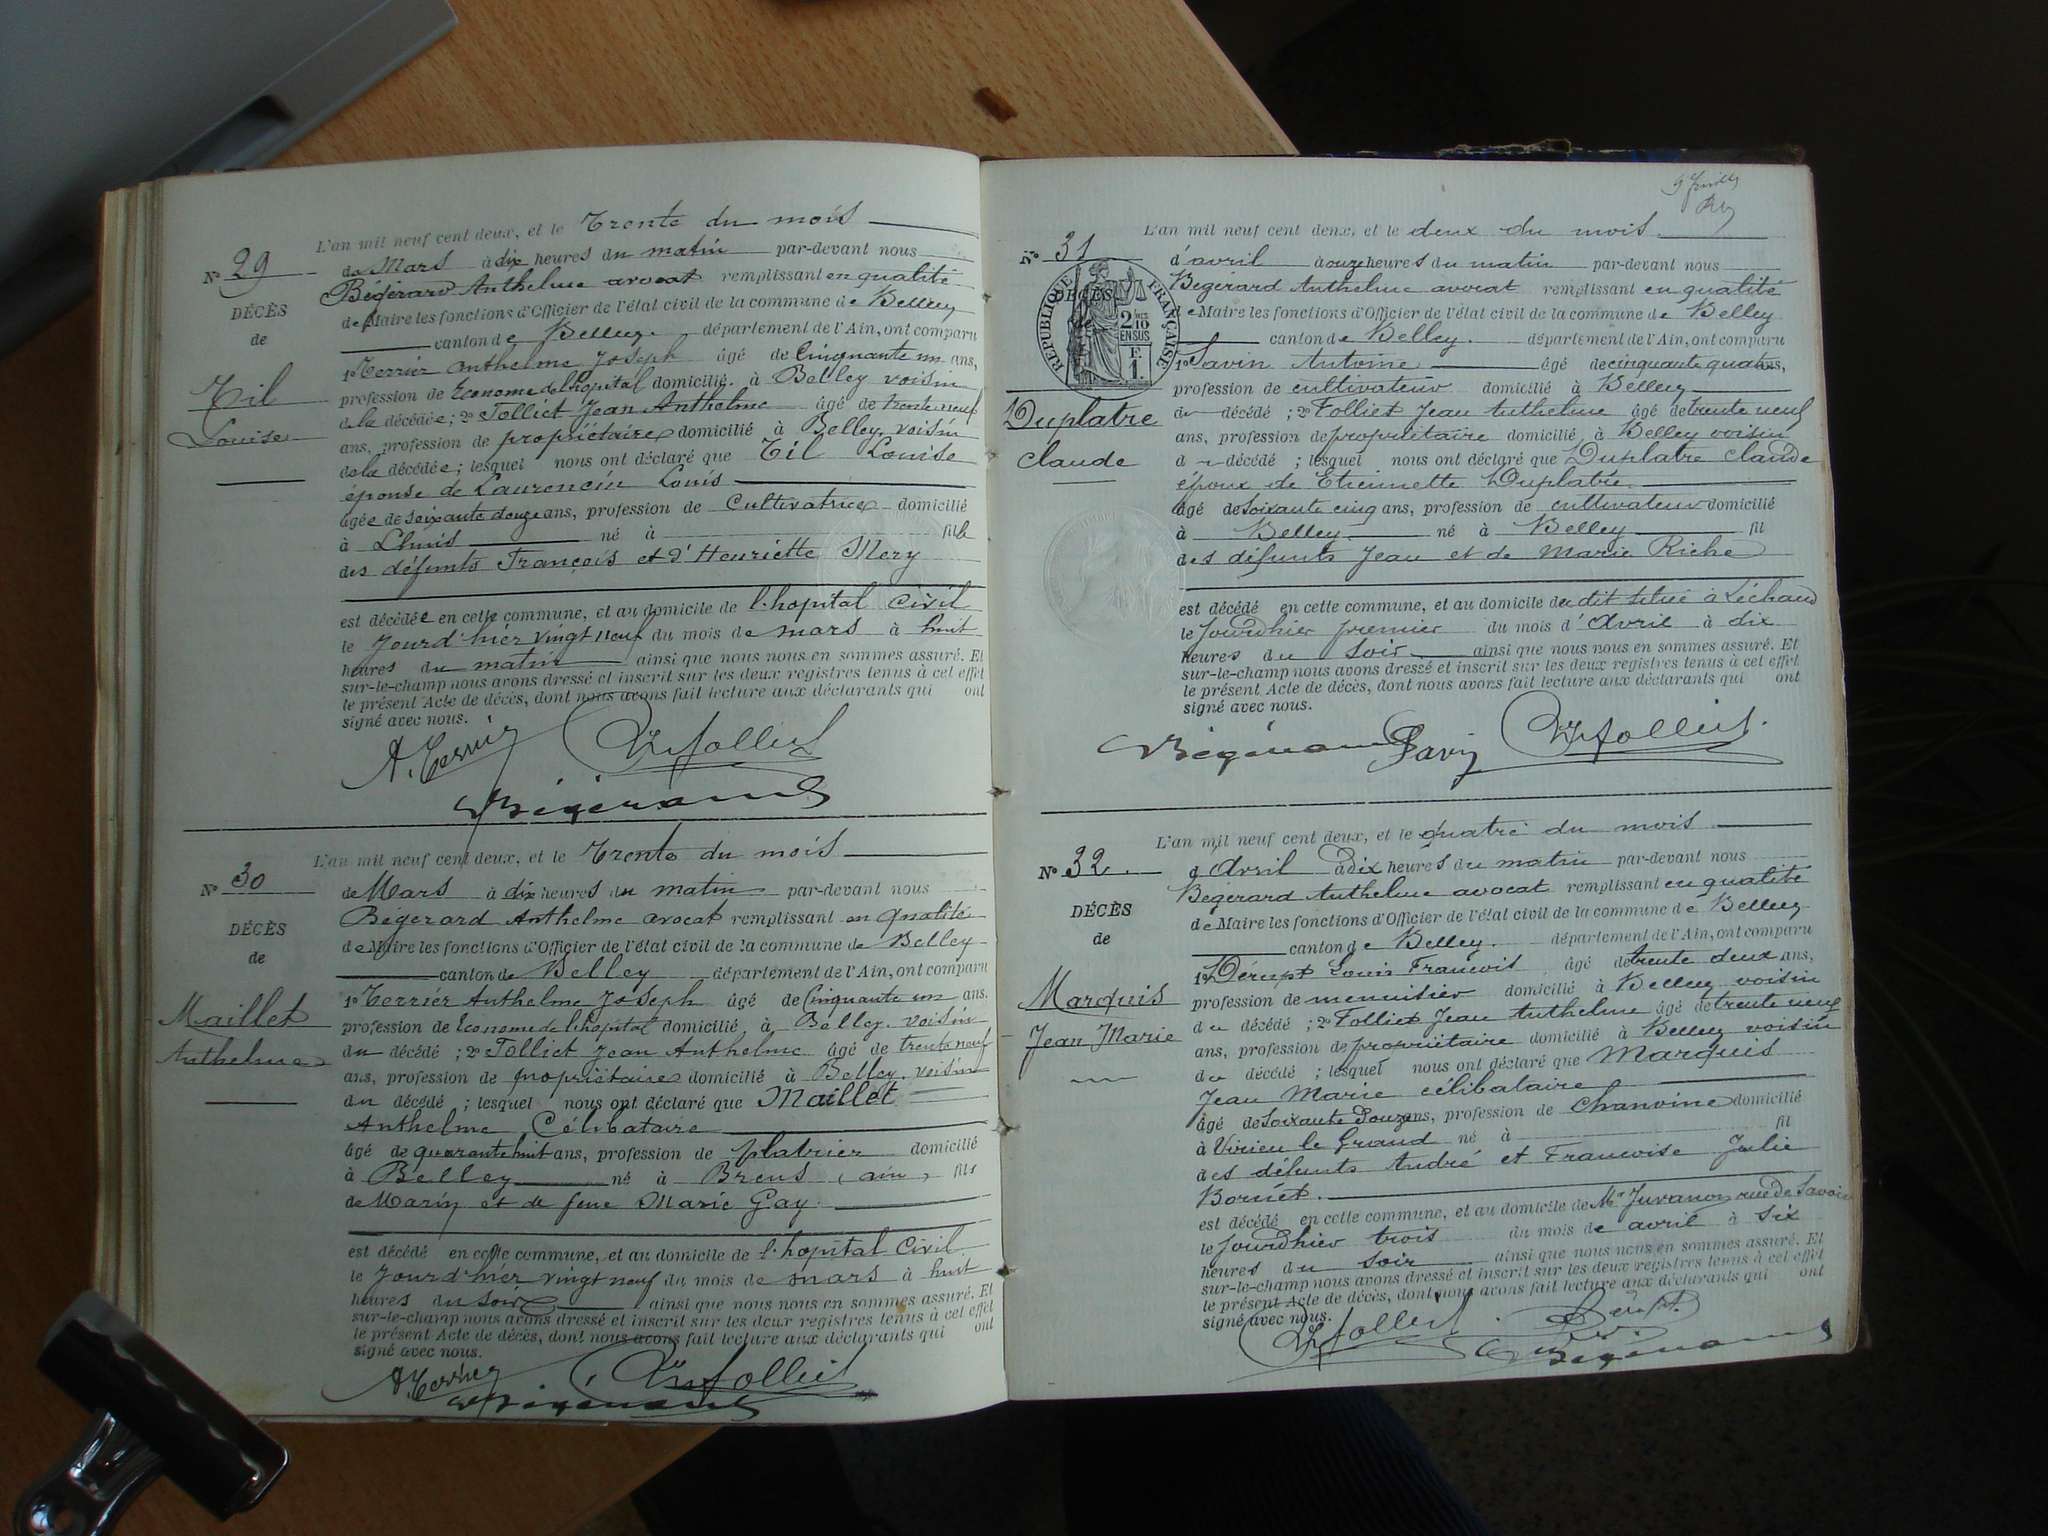 L'an mil neuf cent deux, et le Trente du mois
N° 29
de Mars à dix heures du matin par-devant nous
Bégérard Anthelme avocat remplissant en qualité
DÉCÈS
de Maire les fonctions d'Officier de l'état civil de la commune de Belley
de
canton de Belley. département de l'Ain, ont comparu
1° Terrier Anthelme Joseph âgé de Cinquante un ans,
Til
profession de Econome de l'hopital domicilié à Belley voisin
de la décédée; 2° Folliet Jean Anthelme âgé de trente neuf
Louise
ans, profession de propriétaire domicilié à Belley. voisin
de la décédée; lesquel nous ont déclaré que Til Louise
épouse de Laurencin Louis
âgée de soixante douze ans, profession de Cultivatrice domicilié
à Lhuis né à fille
des défunts François et d'Henriette Mery
est décédée en cette commune, et au domicile de l'hopital Civil
le Jourd'hier vingt neuf du mois de mars à huit
heures du matin ainsi que nous nous en sommes assuré. Et
sur-le-champ nous avons dressé et inscrit sur les deux registres tenus à cet effet
le présent Acte de décès, dont nous avons fait lecture aux déclarants qui ont
signé avec nous.
A. Terrier Folliet
Bégérard
L'an mil neuf cent deux, et le Trente du mois
N° 30
de Mars à dix heures du matin par-devant nous
Bégérard Anthelme avocat remplissant en qualité
DÉCÈS
de Maire les fonctions d'Officier de l'état civil de la commune de Belley
de
canton de Belley département de l'Ain, ont comparu
1° Terrier Anthelme Joseph âgé de Cinquante un ans.
Maillet
profession de Econome de l'hopital domicilié à Belley. voisin
Anthelme
du décédé ; 2° Folliet Jean Anthelme âgé de trente neuf
ans, profession de propriétaire domicilié à Belley. voisin
du décédé ; lesquel nous ont déclaré que Maillet
Anthelme Célibataire
âgé de quarante huit ans, profession de platrier domicilié
à Belley né à Brens (ain) fils
de Marin et de feue Marie Gay
est décédé en cette commune, et au domicile de l'hopital Civil
le Jourd'hier vingt neuf du mois de mars à huit
heures du soir ainsi que nous nous en sommes assuré. Et
sur-le-champ nous avons dressé et inscrit sur les deux registres tenus à cet effet
le présent Acte de décès, dont nous avons fait lecture aux déclarants qui ont
signé avec nous.
A. Terrier Folliet
Bégérard
L'an mil neuf cent deux, et le deux du mois
N° 31
d'avril à onze heures du matin par-devant nous
Bégérard Anthelme avocat remplissant en qualité
DÉCÈS
RÉPUBLIQUE FRANÇAISE
2/10 EN SUS
1 F.
de Maire les fonctions d'Officier de l'état civil de la commune de Belley
de
canton de Belley. département de l'Ain, ont comparu
1° Savin Antoine âgé de cinquante quatre ans,
profession de cultivateur domicilié à Belley
Duplatre
du décédé ; 2° Folliet Jean Anthelme âgé de trente neuf
ans, profession de propriétaire domicilié à Belley voisin
Claude
du décédé ; lesquel nous ont déclaré que Duplatre Claude
époux de Etiennette Duplatre
âgé de soixante cinq ans, profession de cultivateur domicilié
à Belley né à Belley fil
des défunts Jean et de Marie Riche
est décédé en cette commune, et au domicile du dit situé à Léchaud
le Jourdhier premier du mois d'Avril à dix
heures du soir ainsi que nous nous en sommes assuré. Et
sur-le-champ nous avons dressé et inscrit sur les deux registres tenus à cet effet
le présent Acte de décès, dont nous avons fait lecture aux déclarants qui ont
signé avec nous.
Bégérard Savin Folliet
L'an mil neuf cent deux, et le quatre du mois
N° 32
d'Avril à dix heures du matin par-devant nous
Bégérard Anthelme avocat remplissant en qualité
DÉCÈS
de Maire les fonctions d'Officier de l'état civil de la commune de Belley
de
canton de Belley. département de l'Ain, ont comparu
1° Dérupt Louis François âgé de trente deux ans,
Marquis
profession de menuisier domicilié à Belley voisin
du décédé ; 2° Folliet Jean Anthelme âgé de trente neuf
Jean Marie
ans, profession de propriétaire domicilié à Belley voisin
du décédé ; lesquel nous ont déclaré que Marquis
Jean Marie célibataire
âgé de soixante douze ans, profession de Chanoine domicilié
à Virieu le Grand né à fil
des défunts André et Francoise Julie
Bornet.
est décédé en cette commune, et au domicile de Mr Juvanon rue de Savoie
le Jourdhier trois du mois de avril à six
heures du soir ainsi que nous nous en sommes assuré. Et
sur-le-champ nous avons dressé et inscrit sur les deux registres tenus à cet effet
le présent Acte de décès, dont nous avons fait lecture aux déclarants qui ont
signé avec nous.
Folliet Dérupt
Bégérard